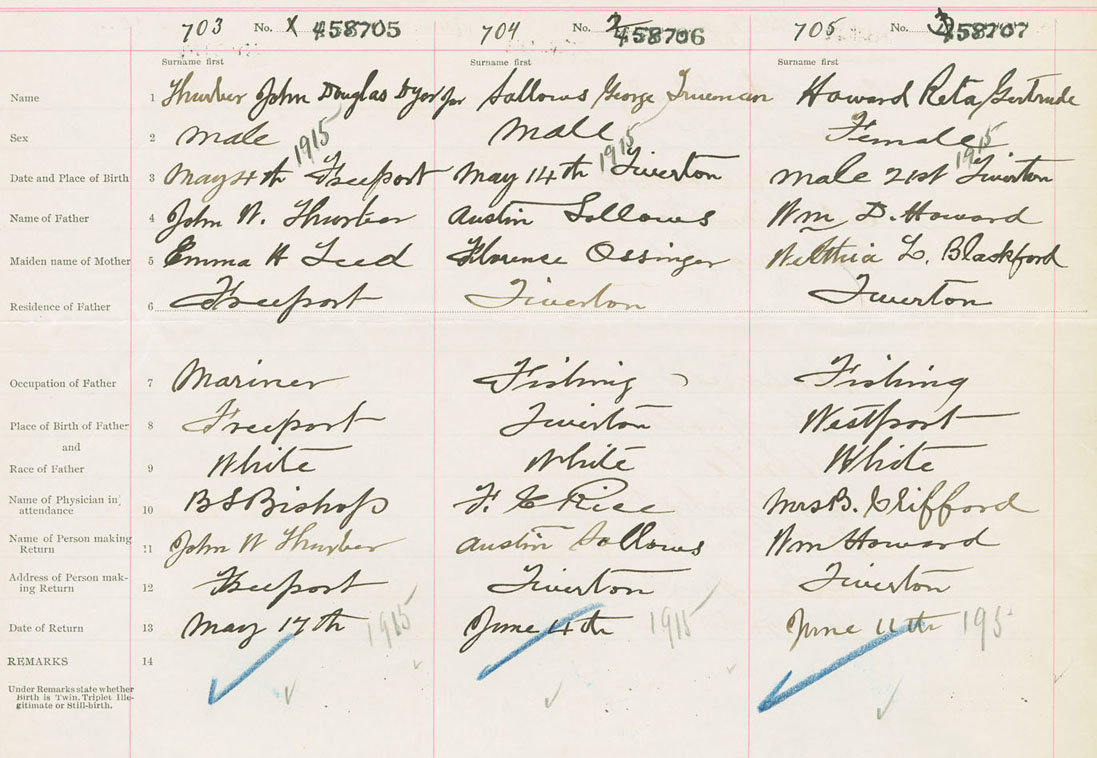 703 No. 1 458705 704 No. 2 458706 705 No. 3 458707
Surname first Surname first Surname first
Name 1 Thurber John Douglas Dyer Jnr Sollows George Trueman Howard Reta Gertrude
Sex 2 male male Female
1915 1915 1915
Date and Place of Birth 3 May 4th Freeport May 14th Tiverton male 21st Tiverton
Name of Father 4 John W. Thurber Austin Sollows Wm D. Howard
Maiden name of Mother 5 Emma H Teed Florence Ossinger Welthia L. Blackford
Residence of Father 6 Freeport Tiverton Tiverton
Occupation of Father 7 Mariner Fishing Fishing
Place of Birth of Father 8 Freeport Tiverton Westport
and
Race of Father 9 White White White
Name of Physician in attendance 10 B S Bishop F. E Rice Mrs B. Clifford
Name of Person making Return 11 John W Thurber Austin Sollows Wm Howard
Address of Person mak-ing Return 12 Freeport Tiverton Tiverton
Date of Return 13 May 17th 1915 June 4th 1915 June 11th 195
REMARKS 14
Under Remarks state whether
Birth is Twin, Triplet Ille-
gitimate or Still-birth.